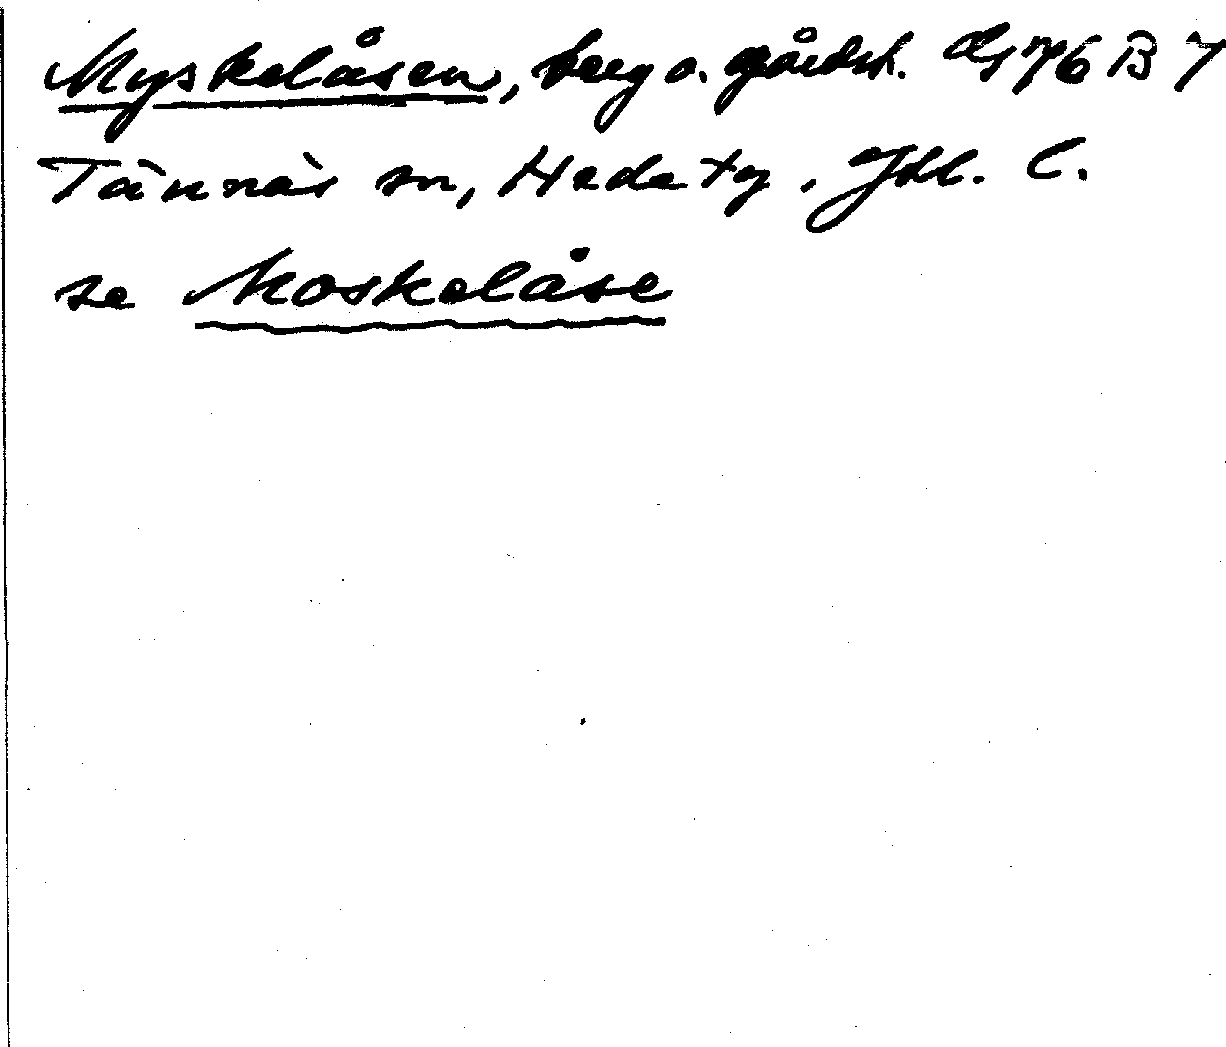 Myskelåsen, berg o. gårdst. Gs 76 B 7
Tännäs sn, Hede tg, Jtl. l.
se Moskelåse